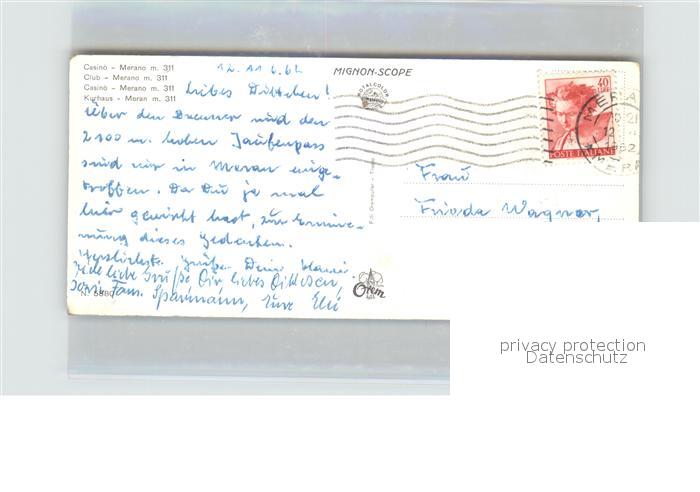 Casinò - Merano m. 311
Club - Merano m. 311
Casinò - Merano m. 311
Kurhaus - Meran m. 311
12. 11 6. 62
Liebes Dittchen!
Über den Brenner und den
2100 m. hohen Jaufenpass
sind wir in Meran einge-
troffen. Da Du ja mal
hier gewirkt hast, zur Erinne-
rung dieses Gedenken.
Herzlichste Grüße Deine
Viele liebe Grüße Dir, liebes Dittchen,
Fam. Sparmann, Eure Elli
N. 5880
MIGNON-SCOPE
TOTALCOLOR
Orem
40
LIRE
POSTE ITALIANE
MERA
12
Frau
Frieda Wagner,
privacy protection
Datenschutz